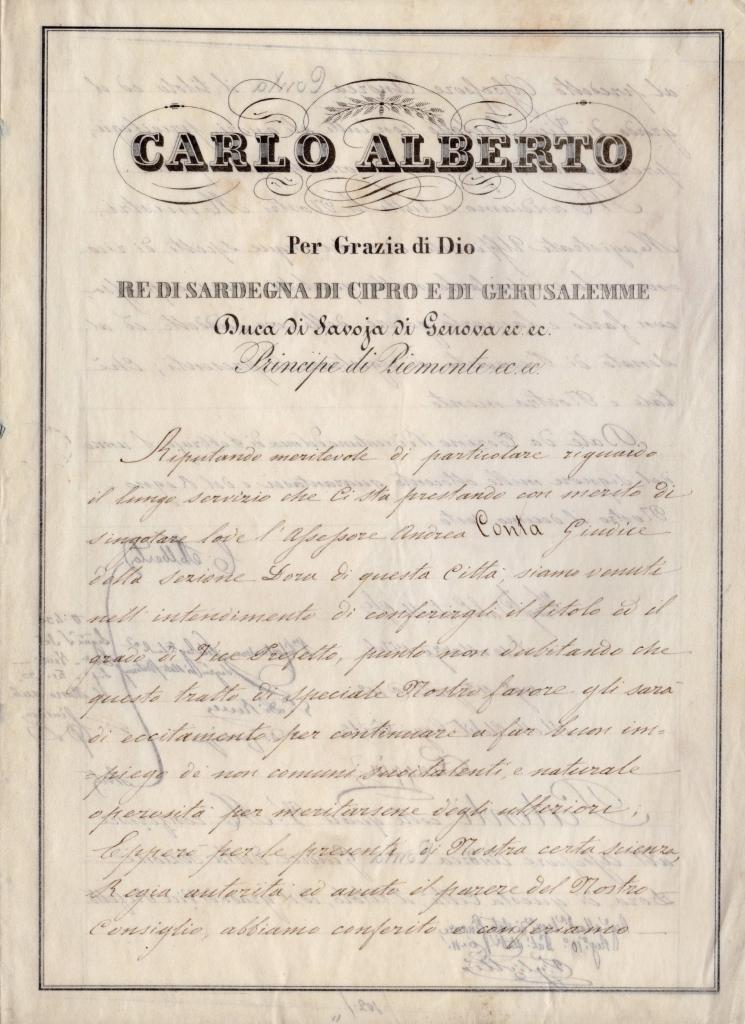 CARLO ALBERTO
Per Grazia di Dio
RE DI SARDEGNA DI CIPRO E DI GERUSALEMME
Duca di Savoja di Genova ec. ec.
Principe di Piemonte ec. ec.
Riputando meritevole di particolare riguardo
il lungo servizio che Ci sta prestando con merito di
singolare lode l'Assessore Andrea Conta Giudice
della sezione Dora di questa Città, siamo venuti
nell'intendimento di conferirgli il titolo ed il
grado di Vice Prefetto, punto non dubitando che
questo tratto di speciale Nostro favore gli sarà
di eccitamento per continuare a far buon im=
=piego de' non comuni suoi talenti, e naturale
operosità per meritarsene degli ulteriori;
Epperò per le presenti di Nostra certa scienza,
Regia autorità ed avuto il parere del Nostro
Consiglio, abbiamo conferito e conferiamo